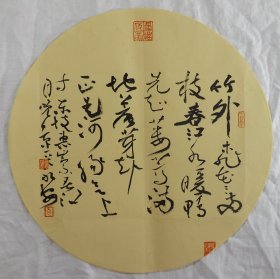 竹外桃花三两
枝春江水暖鸭
先知蒌蒿满
地芦芽短
正是河豚欲上
时 东坡惠崇春江